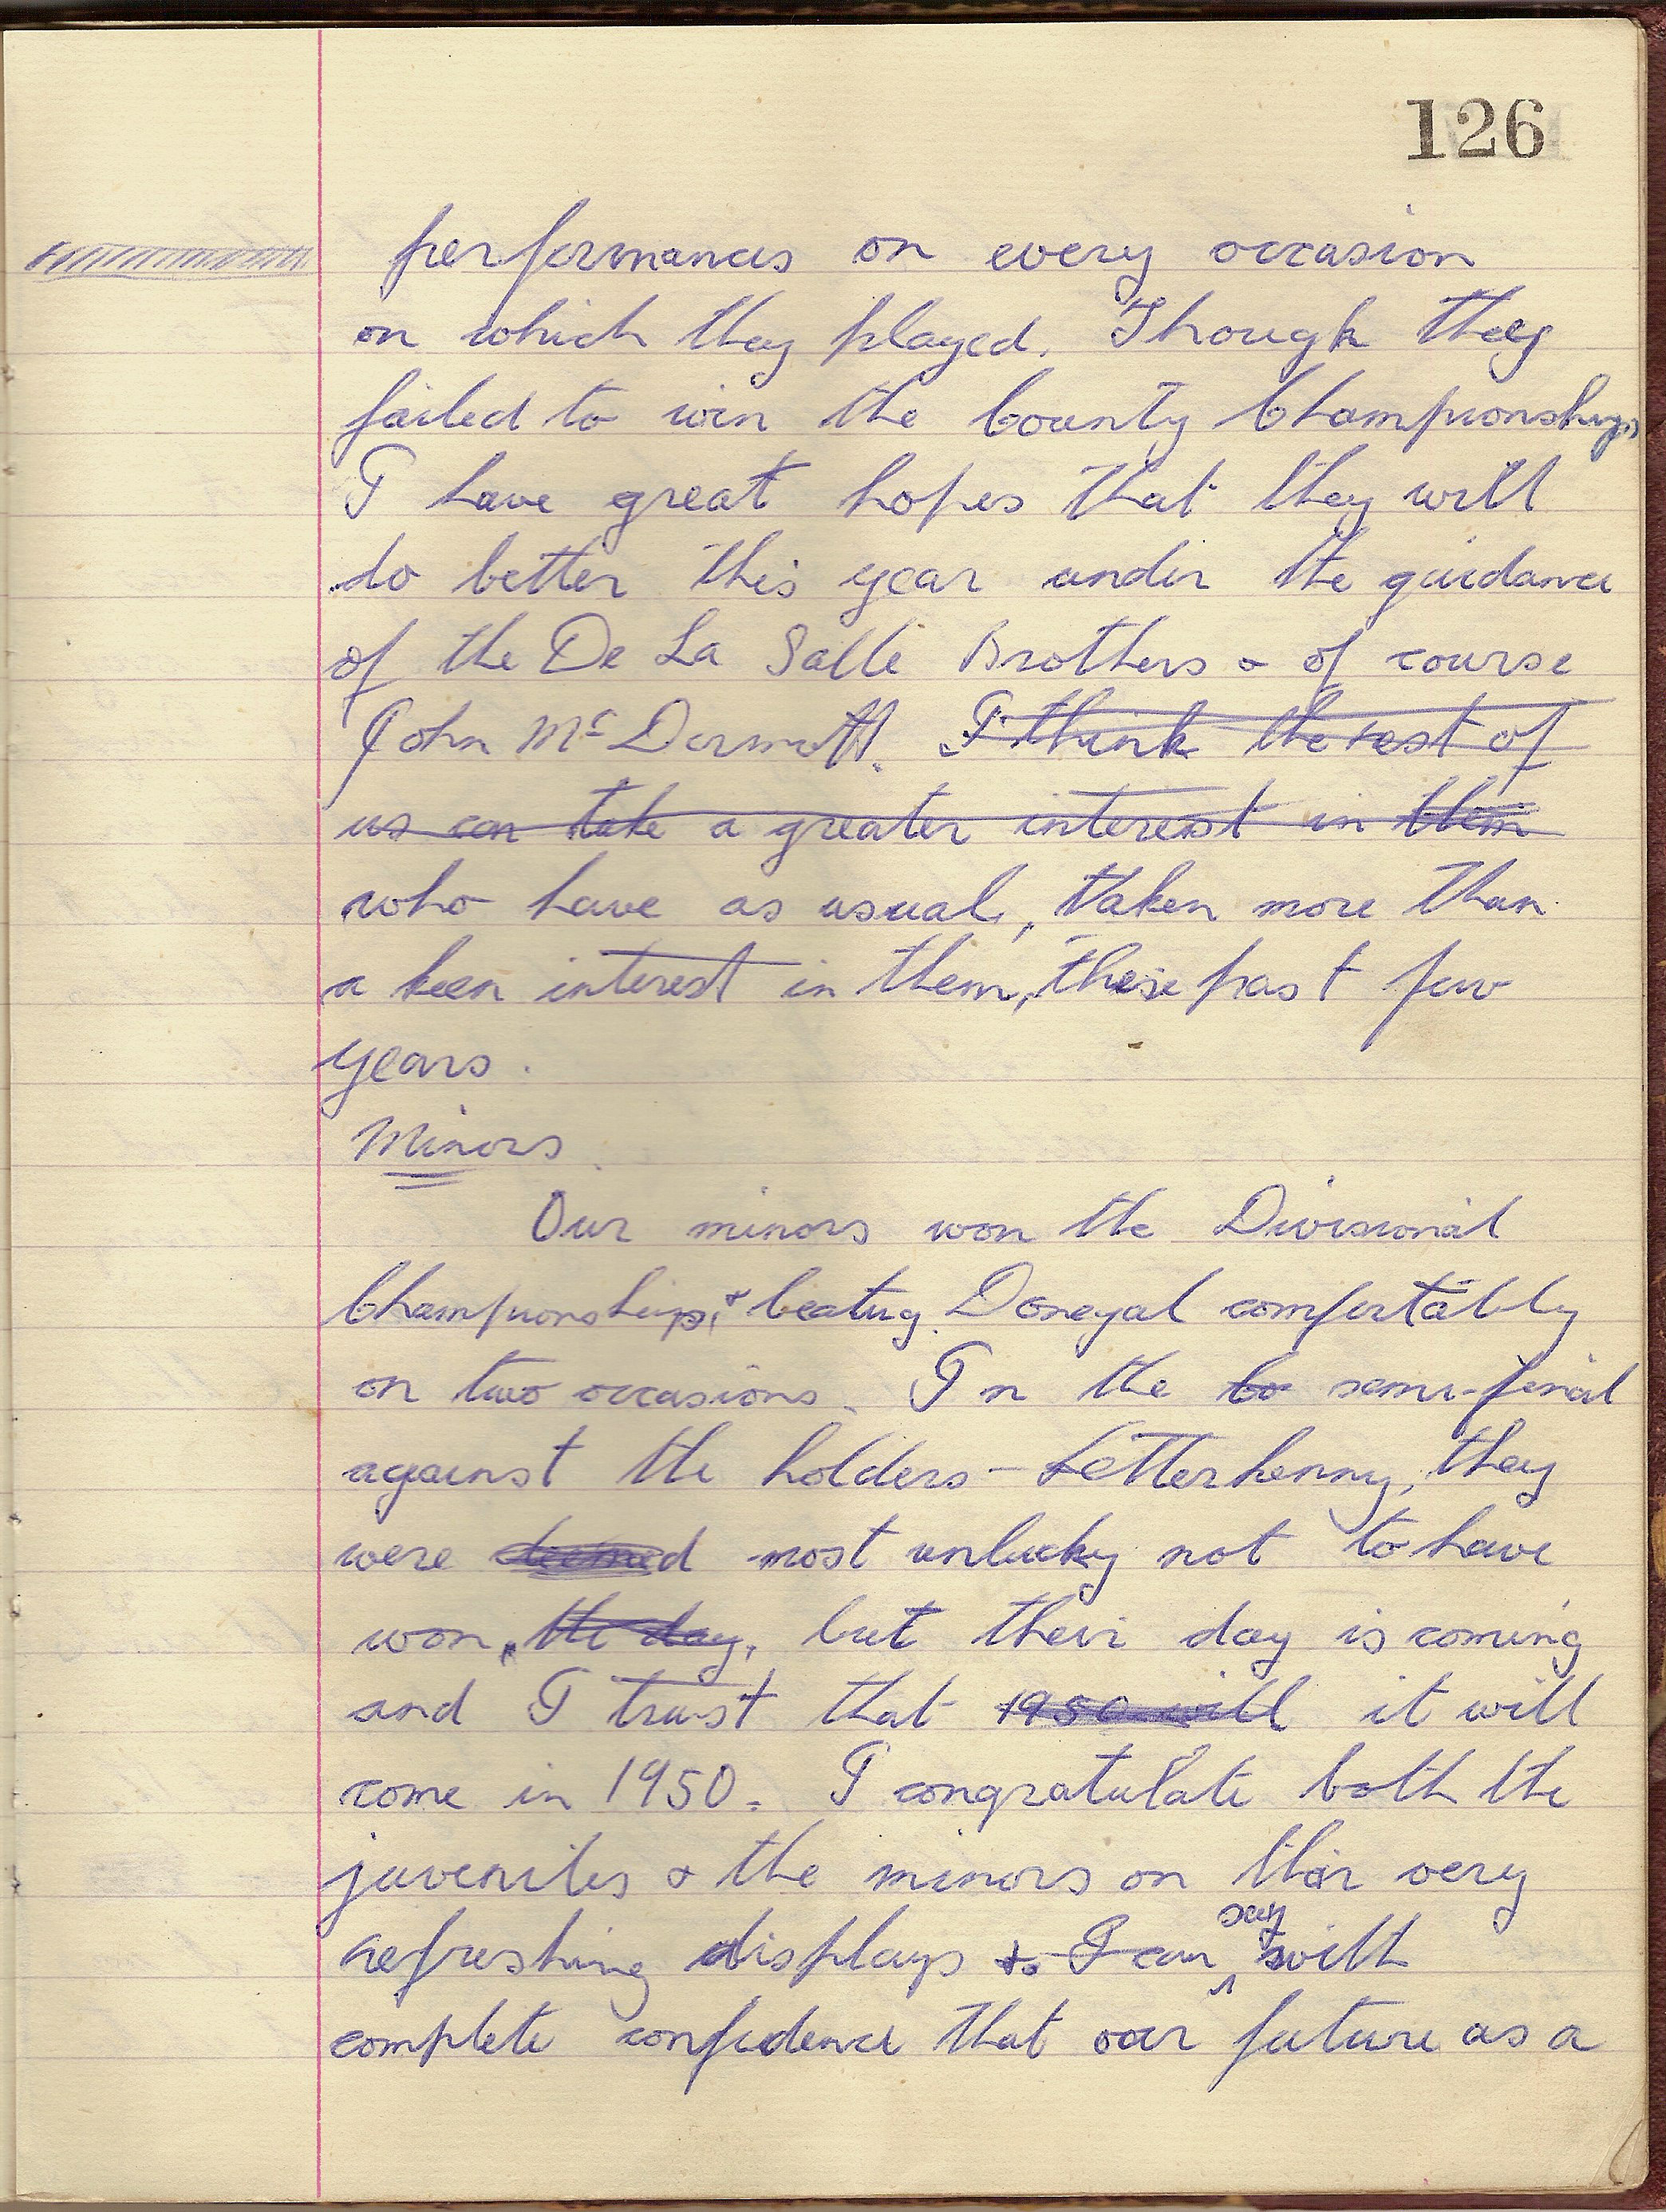 126
performances on every occasion
on which they played. Though they
failed to win the County Championship,
I have great hopes that they will
do better this year under the guidance
of the De La Salle Brothers & of course
John McDermott. I think the rest of
us can take a greater interest in them
who have as usual, taken more than
a keen interest in them, these past few
years.
Minors.
Our minors won the Divisional
Championship, & beating Donegal comfortably
on two occasions. In the Co semi-final
against the holders - Letterkenny, they
were deemed most unlucky not to have
won, the day, but their day is coming
and I trust that 1950 will it will
come in 1950. I congratulate both the
juveniles & the minors on their very
refreshing displays & I can say with
complete confidence that our future as a